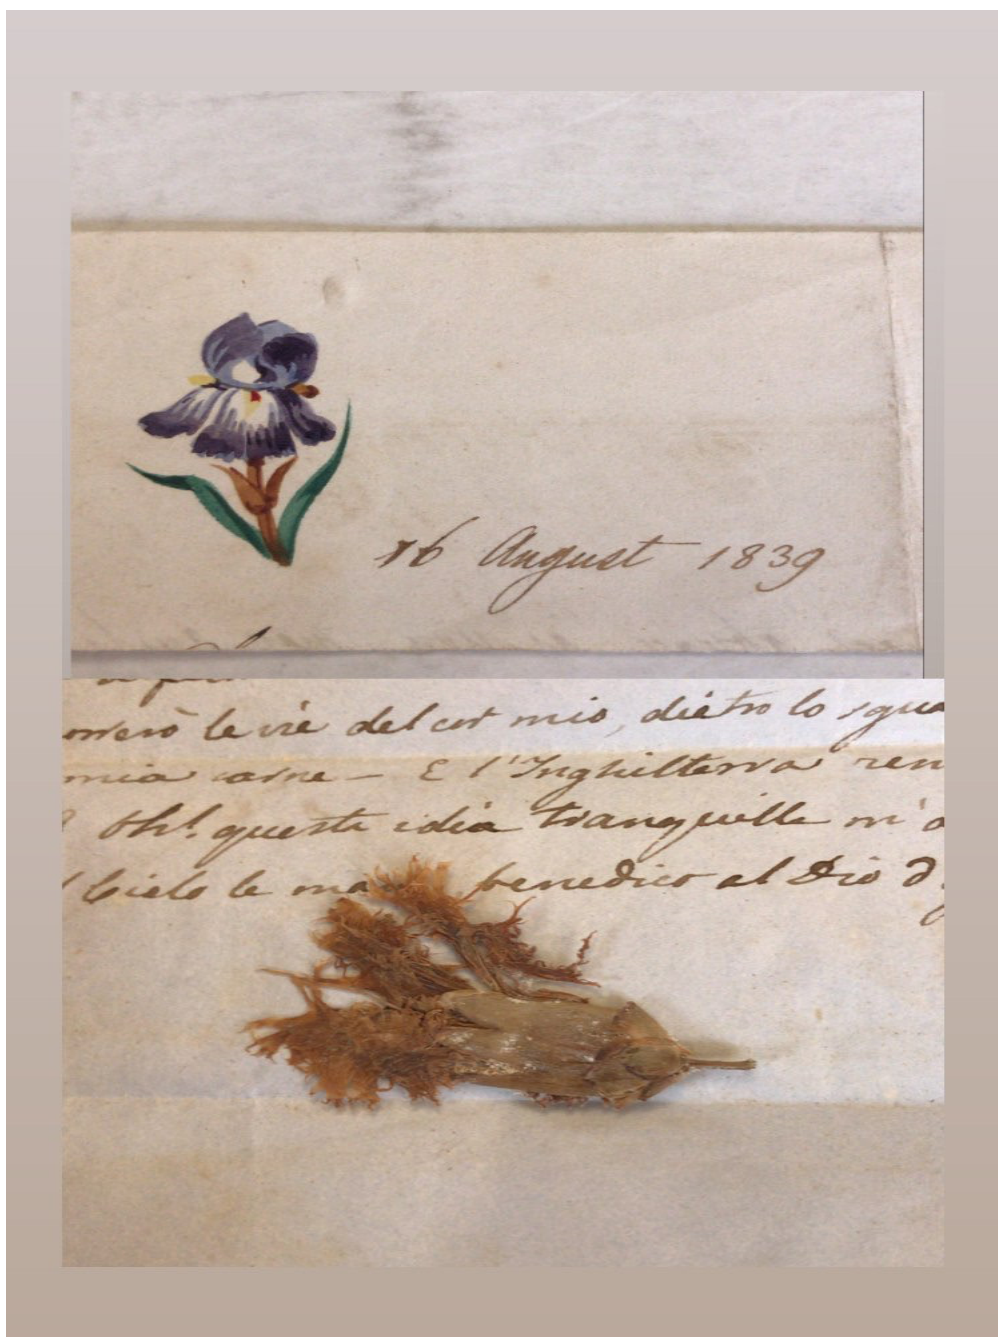 16 August 1839
le vie del cor mio, dietro lo sgua
mia carne – E l'Inghilterra ren
Oh! queste idia tranquille m'a
Cielo le ma benedico al Dio d